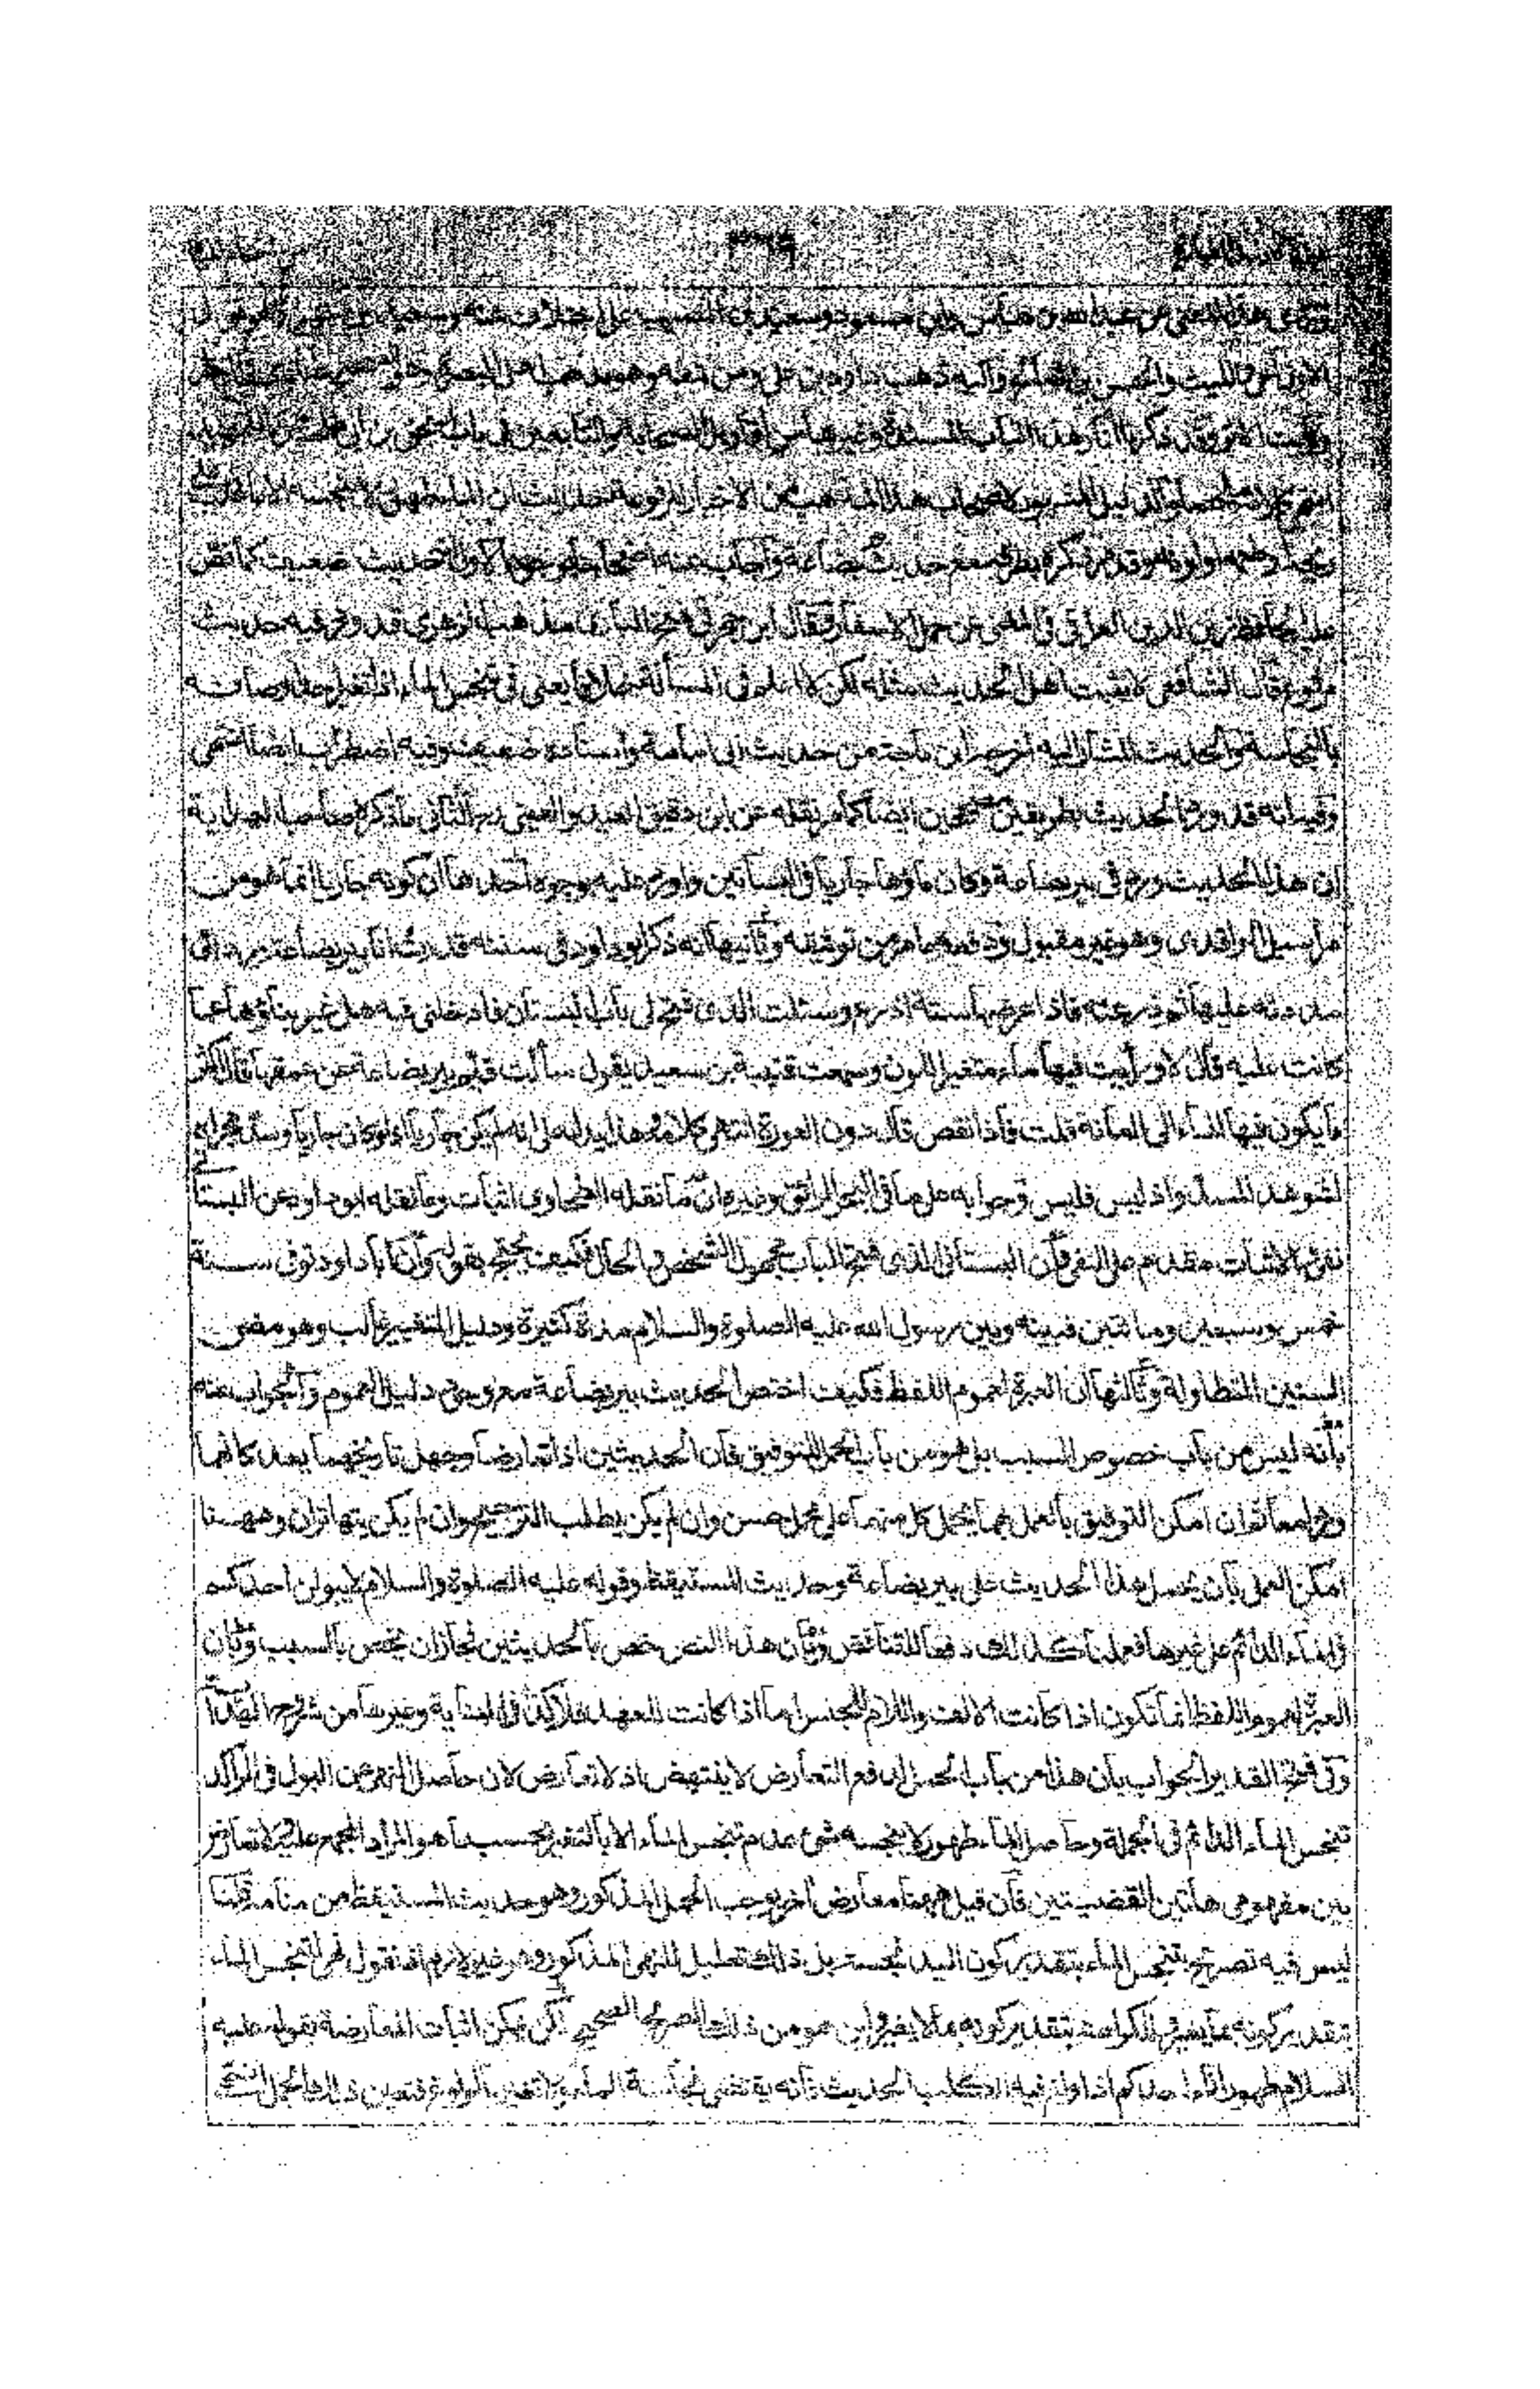 ٣٦٩
هذا المعنى عن عبد الله بن عباس وابن مسعود وسعيد بن المسيب على اختلاف عنه وسعيد بن جبير وهو قول
الاوزاعي والليث والحسن بن صالح واليه ذهب داود بن علي ومن تبعه وهو مذهب اهل البصرة
وقد ذكرنا في هذا الباب من اقاويل الصحابة والتابعين في
لاصحاب هذا المذهب من الاخبار المرفوعة حديث ان الماء طهور لا ينجسه الا ما غلب على
ريحه او طعمه او لونه وقد مر ذكره بطرقه مع حديث بير بضاعة واجاب عنه اصحابنا بوجوه الاول انه حديث ضعيف كما نص
عليه الحافظ زين الدين العراقي في المغني عن حمل الاسفار وقال ابن حجر في فتح الباري مذهب الزهري قد ورد فيه حديث
مرفوع قال الشافعي لا يثبت اهل الحديث مثله لكن لا اعلم في المسألة خلافا يعني في تنجيس الماء اذا تغير احد اوصافه
بالنجاسة والحديث المشار اليه اخرجه ابن ماجة من حديث ابي امامة واسناده ضعيف وفيه اضطراب ايضا انتهى
وفيه انه قد ورد الحديث بطريقين صحيحين ايضا كما مر نقله عن ابن دقيق العيد والعيني رح الثاني ما ذكره صاحب الهداية
ان هذا الحديث ورد في بير بضاعة وكان ماؤها جاريا في البساتين واورد عليه بوجوه احدها ان كونه جاريا انما هو من
مراسيل الواقدي وهو غير مقبول ودفعه ما مر من توثيقه وثانيها انه ذكر ابو داود في سننه قدرت انا بير بضاعة بردائي
مددته عليها ثم ذرعته فاذا عرضها ستة اذرع وسئلت الذي فتح لي باب البستان فادخلني فيه هل غير بناؤها عما
كانت عليه قال لا ورأيت فيها ماء متغير اللون وسمعت قتيبة بن سعيد يقول سألت قيم بير بضاعة عن عمقها قال اكثر
ما يكون فيها الماء الى العانة قلت فاذا نقص قال دون العورة انتهى كلامه وهذا يدل على انه لم يكن جاريا اذ لو كان جاريا وسد مجراه
لشوهد المسد واذ ليس فليس وجوابه على ما في البحر الرائق وغيره ان ما نقله الطحاوي اثبات وما نقله ابو داود عن البستاني
نفي والاثبات مقدم على النفي فان البستاني الذي فتح الباب مجهول الشخص والحال فكيف يحتج بقوله وان ابا داود توفي سنة
خمس وسبعين ومائتين فبينه وبين رسول الله عليه الصلوة والسلام مدة كثيرة ودليل التغير غالب وهو مضي
السنين المتطاولة وثالثها ان العبرة لعموم اللفظ فكيف اختص الحديث ببير بضاعة مع وجود دليل العموم والجواب عنه
بانه ليس من باب خصوص السبب بل هو من باب الحمل للتوفيق فان الحديثين اذا تعارضا وجهل تاريخهما يعد كانهما
وردا معا ثم ان امكن التوفيق بالعمل بهما يحمل كل منهما على محمل حسن وان لم يكن يطلب الترجيح وان لم يكن يتهاتران وههنا
امكن العمل بان يحمل هذا الحديث على بير بضاعة وحديث المستيقظ وقوله عليه الصلوة والسلام لا يبولن احدكم
في الماء الدائم على غيرها فعلنا كذلك دفعا للتناقض وبان هذا النص خص بالحديثين فجاز ان يخص بالسبب وبان
العبرة لعموم اللفظ انما تكون اذا كانت الالف واللام للجنس اما اذا كانت للعهد فلا كذا في العناية وغيرها من شروح الهداية
وفي فتح القدير الجواب بان هذا من باب الحمل لدفع التعارض لا ينتهض اذ لا تعارض لان حاصل النهي عن البول في الراكد
تنجس الماء الدائم في الجملة وحاصل الماء طهور لا ينجسه شئ عدم تنجس الماء الا بالتغير بحسب ما هو المراد المجمع عليه ولا تعارض
بين مفهومي هاتين القضيتين فان قيل ههنا معارض اخر يوجب الحمل المذكور وهو حديث المستيقظ من منامه قلنا
ليس فيه تصريح بتنجس الماء بتقدير كون اليد نجسة بل ذلك تعليل للنهي المذكور وهو غير لازم اذ نقول نهى لتنجس الماء
بتقدير كونه مما يغير او للكراهة بتقدير كونه مما لا يغير واين هو من ذلك الصريح الصحيح لكن يمكن اثبات المعارضة بقوله عليه
السلام طهور اناء احدكم اذا ولغ فيه الكلب الحديث فانه يقتضي نجاسة الماء ولا تغير بالولوغ فتعين ذلك الحمل انتهى